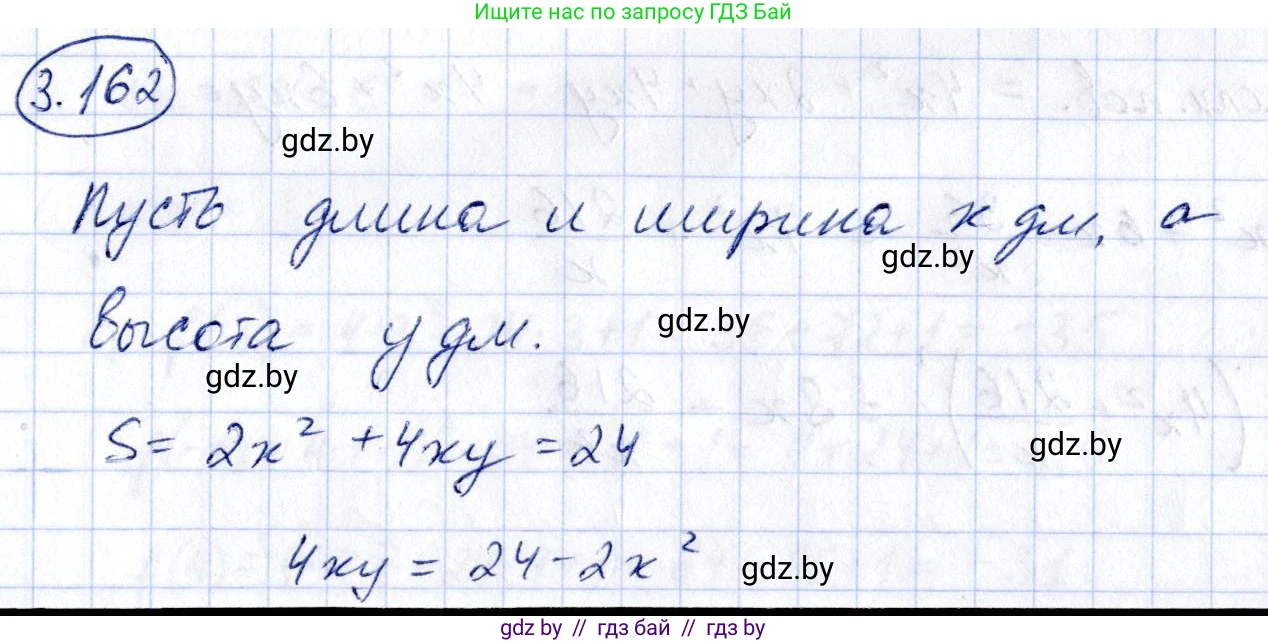 Ищите нас по запросу ГДЗ Бай
3.162
gdz.by
Пусть длина и ширина x дм, а
gdz.by
высота y дм.
gdz.by
gdz.by
S = 2x² + 4xy = 24
gdz.by
4xy = 24 - 2x²
gdz.by
gdz by // гдз бай // гдз by